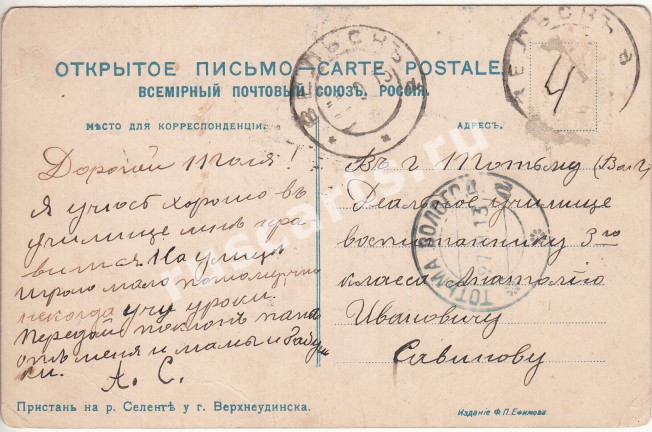 ОТКРЫТОЕ ПИСЬМО.—CARTE POSTALE.
ВСЕМІРНЫЙ ПОЧТОВЫЙ СОЮЗЪ. РОССІЯ.
МѢСТО ДЛЯ КОРРЕСПОНДЕНЦІИ.
Дорогой Толя!
Я учусь хорошо въ
училище мнѣ нра
вится На улицѣ
играю мало потому что
некогда учу уроки.
Передай поклонъ папѣ
отъ меня и мамы и бабуш
ки. А. С.
АДРЕСЪ.
4
Въ г Тотьму (Волг)
Реальное училище
воспитаннику 3го
класса Анатолію
Ивановичу
Савинову
ТОТЬМА ВОЛОГОД.
Пристань на р. Селентѣ у г. Верхнеудинска.
Изданіе Ф.П.Ефимова.
ruscards.ru